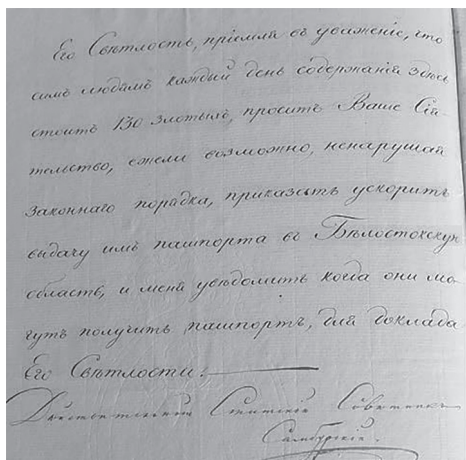 Его Свѣтлость, пріемля въ уваженіе, что
симъ людямъ каждый день содержанія здѣсь
стоитъ 130 злотыхъ, проситъ Ваше Сія-
тельство, ежели возможно, ненарушая
законнаго порядка, приказать ускорить
выдачу имъ пашпорта въ Бѣлостокскую
область, и меня увѣдомить когда они мо-
гутъ получить пашпортъ, для доклада
Его Свѣтлости.
Дѣйствительный Статскій Совѣтникъ